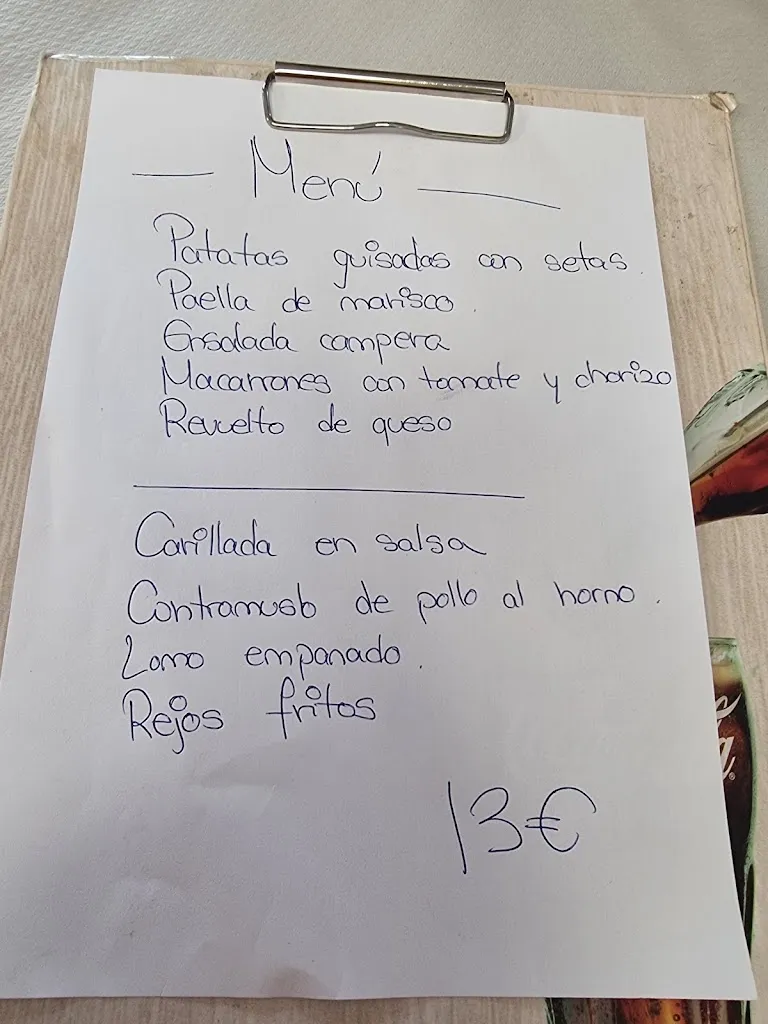 Menú
Patatas guisadas con setas.
Paella de marisco.
Ensalada campera
Macarrones con tomate y chorizo
Revuelto de queso
Carillada en salsa
Contramuslo de pollo al horno.
Lomo empanado.
Rejos fritos
13€